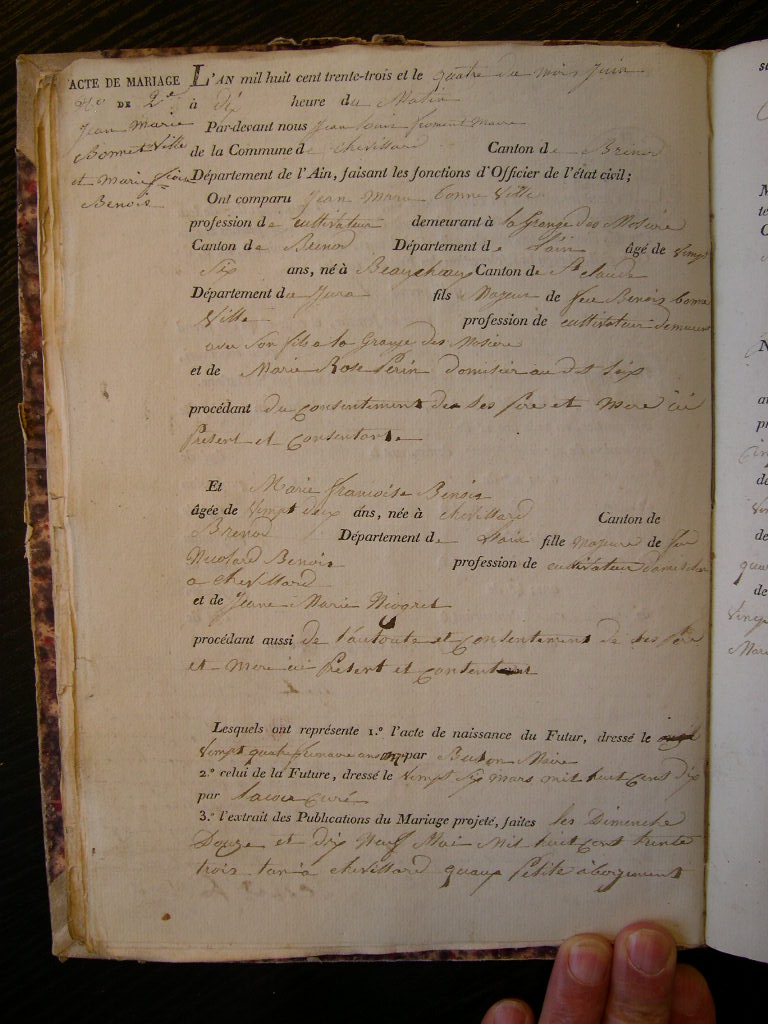 ACTE DE MARIAGE
DE 2e
Jean Marie
Bonnet Ville
et Marie fse
Benois
L'AN mil huit cent trente-trois et le quatre du mois Juin
à dix heure du Matin
Par-devant nous Jean Louis froment Maire
de la Commune de chevillard Canton de Brenod
Département de l'Ain, faisant les fonctions d'Officier de l'état civil;
Ont comparu Jean Marie bonne Ville
profession de cultivateur demeurant à la Grange des Mosière
Canton de Brenod Département de l'ain âgé de vingt
Six ans, né à Canton de St claude
Département du Jura fils Majeur de feu Benois bonne
Ville profession de cultivateur demeurant
avec son fils a la Grange des Mosière
et de Marie Rose Perin
procédant du consentement de ses père et mere ici
Présent et Consentant
Et Marie francoise Benois
âgée de vingt deux ans, née à chevillard Canton de
Brenod Département de l'ain fille majeure de feu
Nicolard Benois profession de cultivateur
a chevillard
et de Jeane Marie
procédant aussi de l'autorité et Consentement de ses père
et Mere ici Présent et Consentent
Lesquels ont représente 1.° l'acte de naissance du Futur, dressé le
vingt quatre par Maire
2.° celui de la Future, dressé le vingt six mars mil huit Cent dix
par curé
3.° l'extrait des Publications du Mariage projeté, faites les Dimanche
Douze et dix Neuf Mai Mil huit Cent trente
trois tant a chevillard quaux Petite abergement